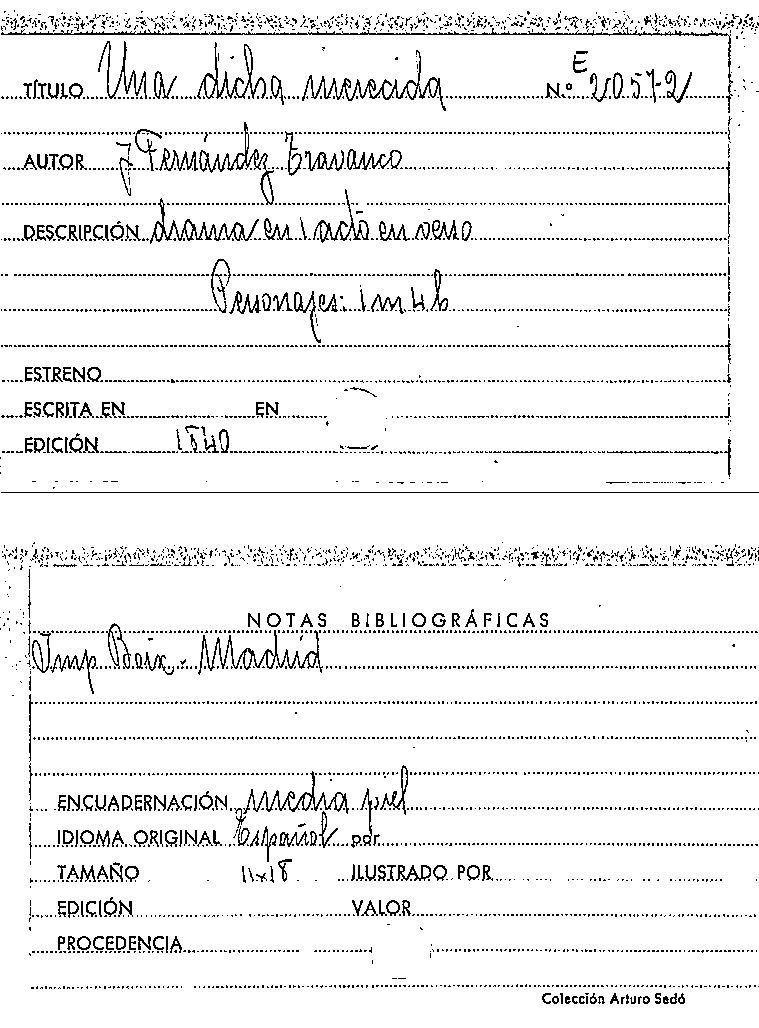 TÍTULO Una dicha merecida N.º E 2057-2
AUTOR J Fernández Travanco
DESCRIPCIÓN drama en 1 acto en verso
Personajes: 1 m 4 h
ESTRENO
ESCRITA EN EN
EDICIÓN 1840
NOTAS BIBLIOGRÁFICAS
Imp Boix - Madrid
ENCUADERNACIÓN media piel
IDIOMA ORIGINAL Español por
TAMAÑO 11x18 ILUSTRADO POR
EDICIÓN VALOR
PROCEDENCIA
Colección Arturo Sedó